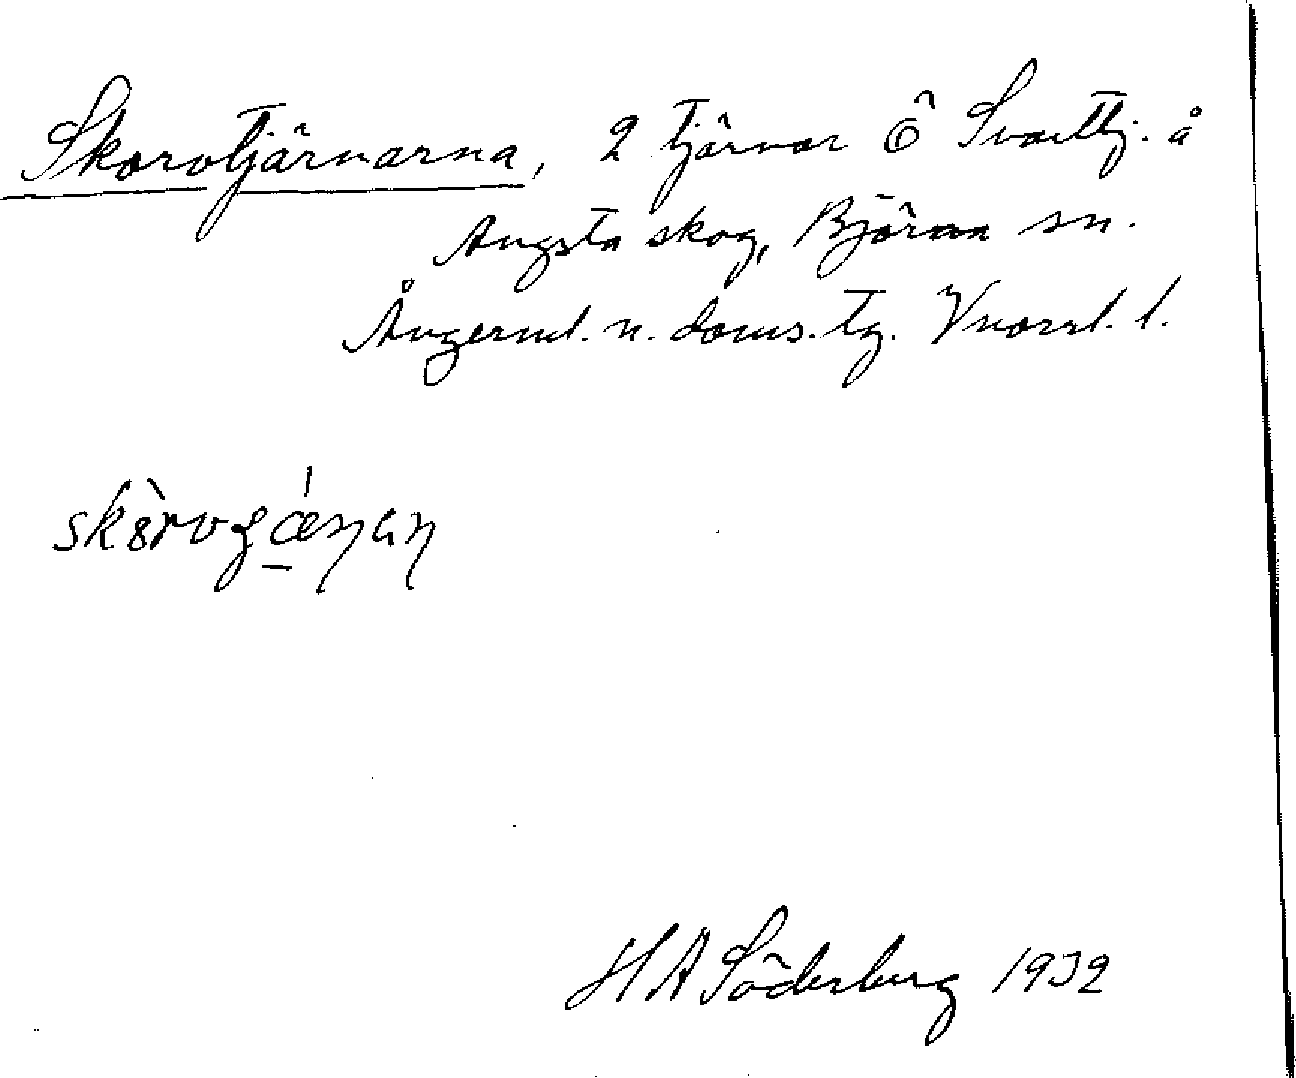 Skorvtjärnarna, 2 tjärnar Ö Svarttj. å
Angsta skog, Björna sn.
Ångerml. n. doms. tg. Vnorrl. l.
H A Söderberg 1932